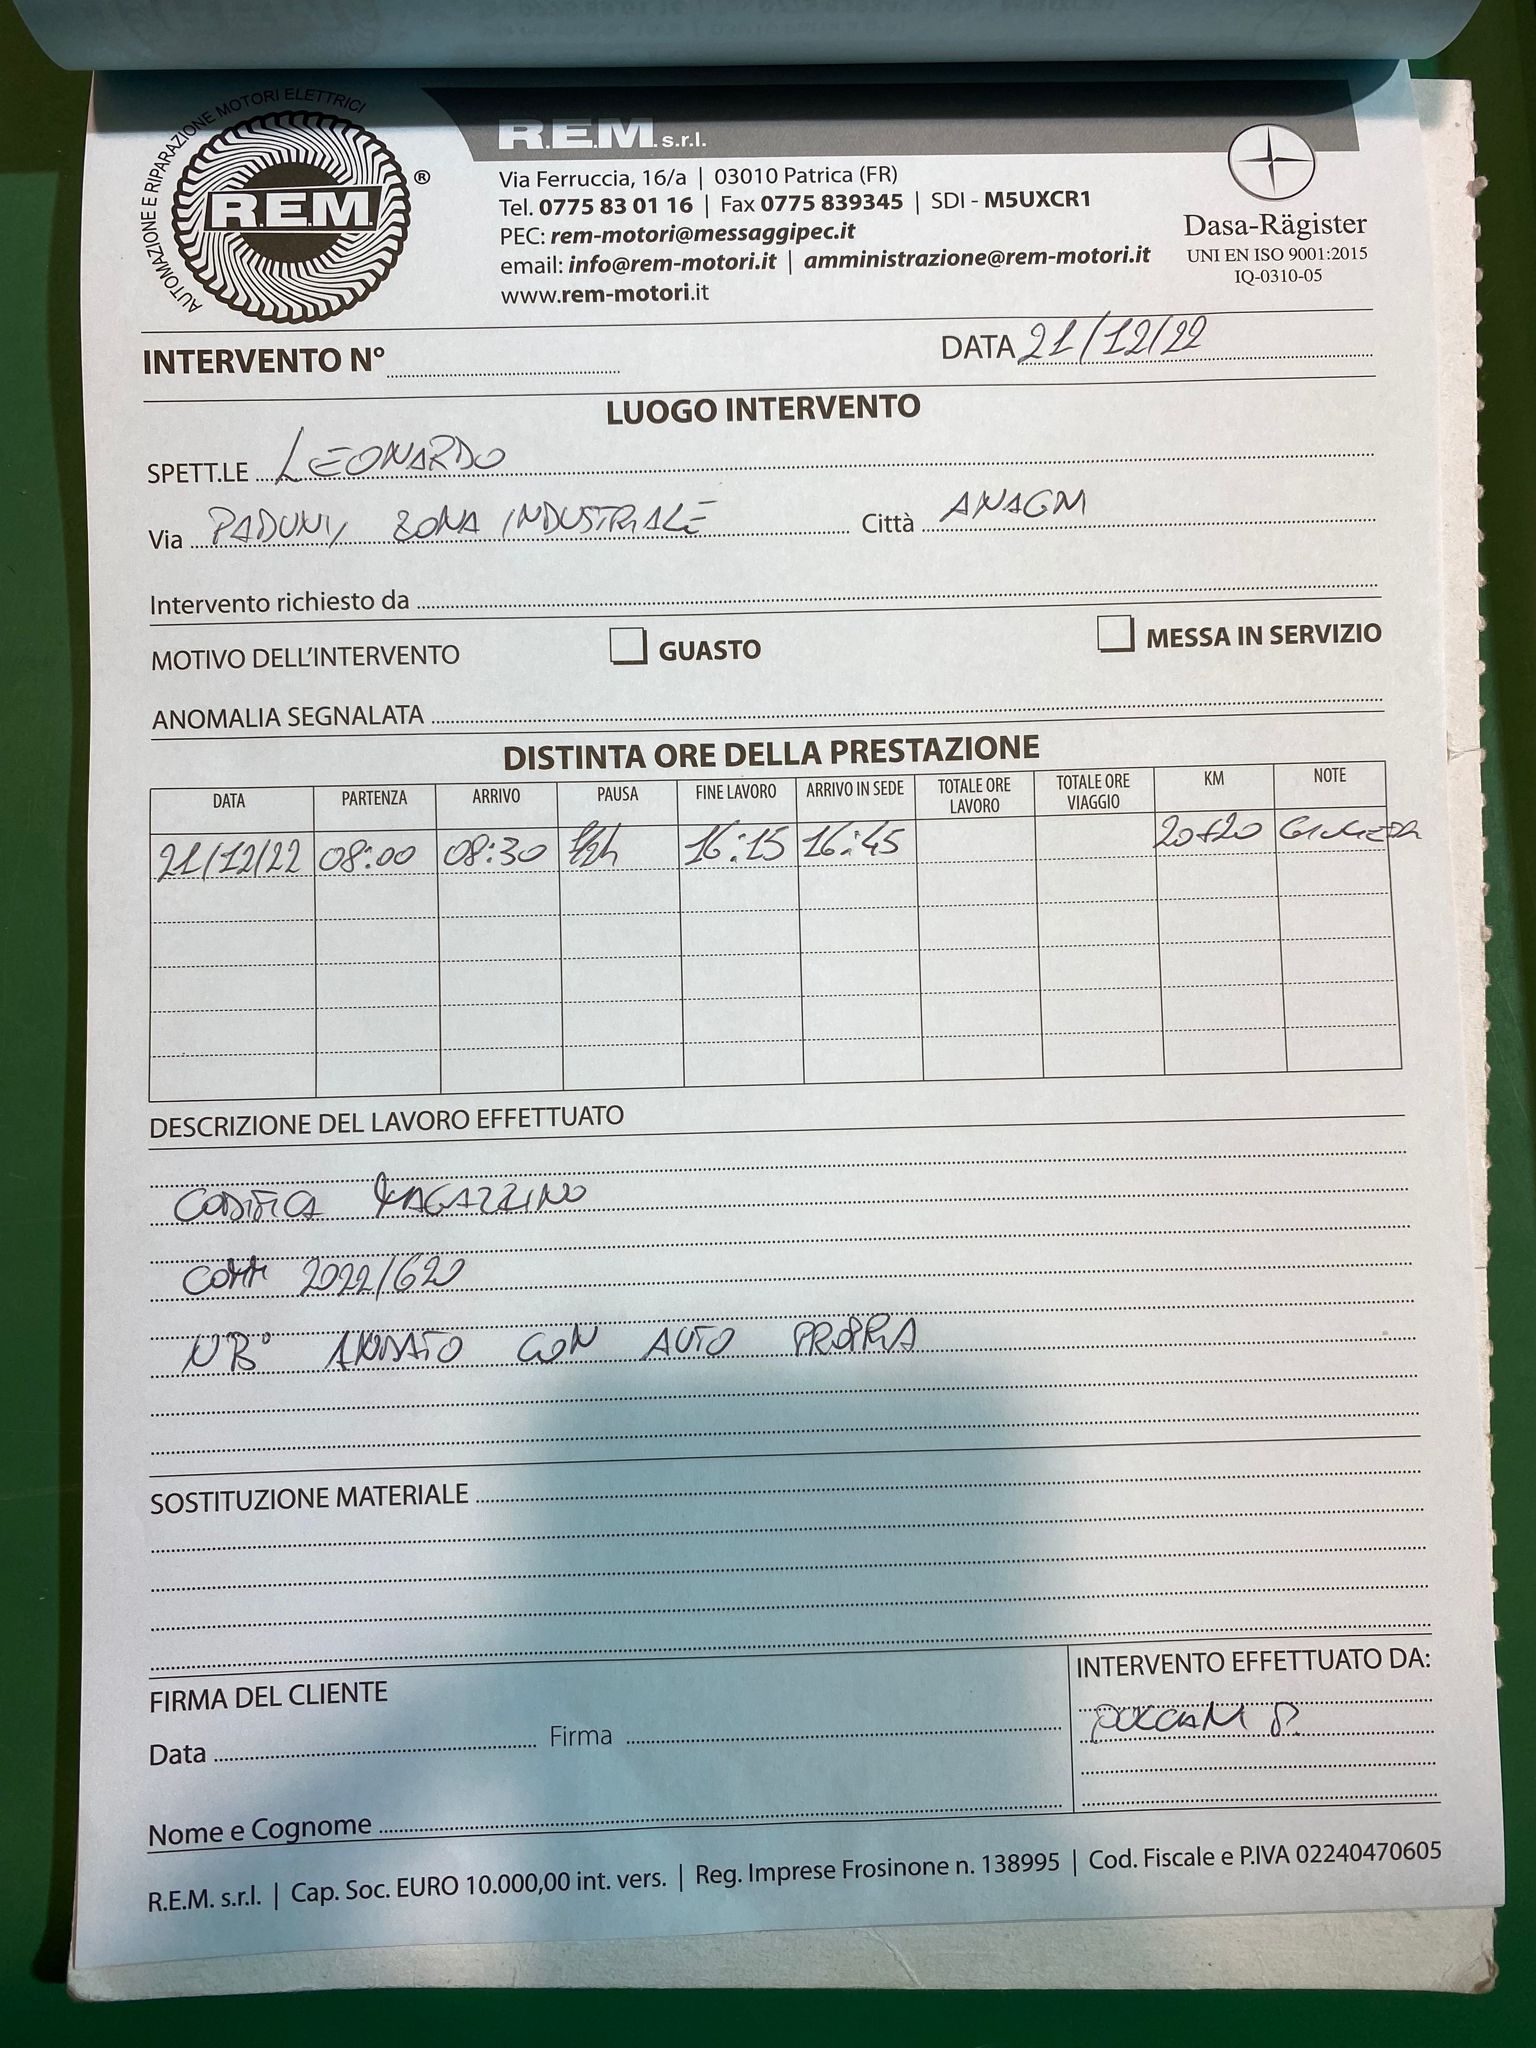 AUTOMAZIONE E RIPARAZIONE MOTORI ELETTRICI
R.E.M. ®
R.E.M. s.r.l.
Via Ferruccia, 16/a | 03010 Patrica (FR)
Tel. 0775 83 01 16 | Fax 0775 839345 | SDI - M5UXCR1
PEC: rem-motori@messaggipec.it
email: info@rem-motori.it | amministrazione@rem-motori.it
www.rem-motori.it
Dasa-Rägister
UNI EN ISO 9001:2015
IQ-0310-05
INTERVENTO N° DATA 21/12/22
LUOGO INTERVENTO
SPETT.LE LEONARDO
Via PADUNI, ZONA INDUSTRIALE Città ANAGNI
Intervento richiesto da
MOTIVO DELL'INTERVENTO GUASTO MESSA IN SERVIZIO
ANOMALIA SEGNALATA
DISTINTA ORE DELLA PRESTAZIONE
DATA PARTENZA ARRIVO PAUSA FINE LAVORO ARRIVO IN SEDE TOTALE ORE LAVORO TOTALE ORE VIAGGIO KM NOTE
21/12/22 08:00 08:30 1/2h 16:15 16:45 20+20
DESCRIZIONE DEL LAVORO EFFETTUATO
CODIFICA MAGAZZINO
COMM 2022/620
NB° ANDATO CON AUTO PROPRIA
SOSTITUZIONE MATERIALE
FIRMA DEL CLIENTE
Data Firma
Nome e Cognome
INTERVENTO EFFETTUATO DA:
R.E.M. s.r.l. | Cap. Soc. EURO 10.000,00 int. vers. | Reg. Imprese Frosinone n. 138995 | Cod. Fiscale e P.IVA 02240470605